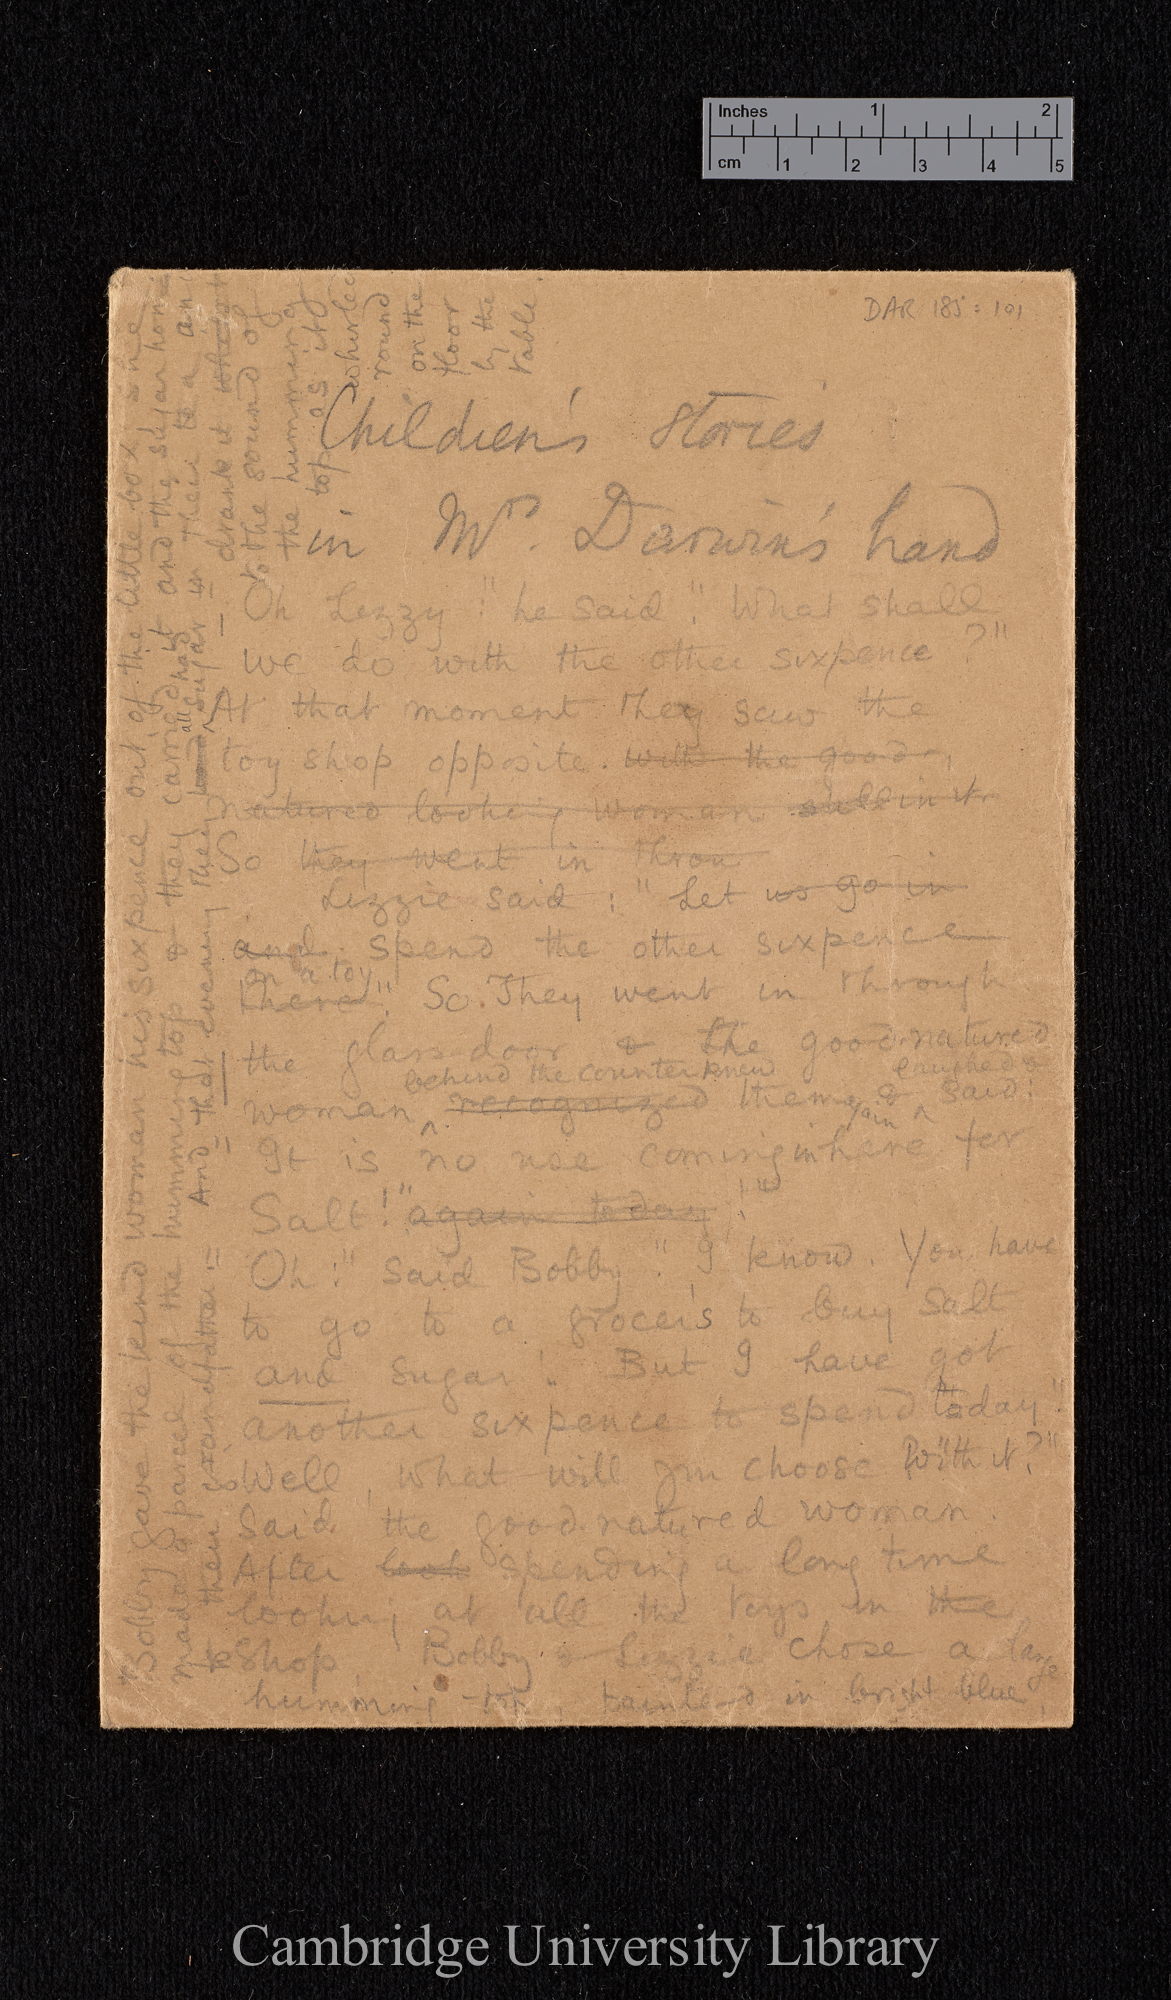 Inches 1 2
cm 1 2 3 4 5
DAR 185:101
Children's Stories
in Mrs. Darwin's hand
Oh Lizzy!" he said". What shall
we do with the other sixpence?"
At that moment they saw the
toy shop opposite. with the good-
natured looking woman
So they went in throu
Lizzie said: "Let us go in
and spend the other sixpence
on a toy
there". So. They went in through
the glass door & the good-natured
behind the counter knew laughed &
woman recognized them & said:
again
"It is no use coming in here for
Salt!" again today!"
"Oh!" said Bobby. "I know. You have
to go to a grocer's to buy salt
and sugar! But I have got
another sixpence to spend today!"
Well, what will you choose with it?"
Said the good-natured woman.
After look spending a long time
looking at all the toys in the
shop, Bobby & Lizzie chose a large
humming-top, painted in bright blue,
Bobby gave the kind woman his sixpence out of the little box, she
made a parcel of the humming top & they carried it and the sugar home
to their grandfather.
And that evening they had all sugar in their tea and
drank it whilst
to the sound of
the humming
top as it
whirled
round
on the
floor
by the
table.
Cambridge University Library